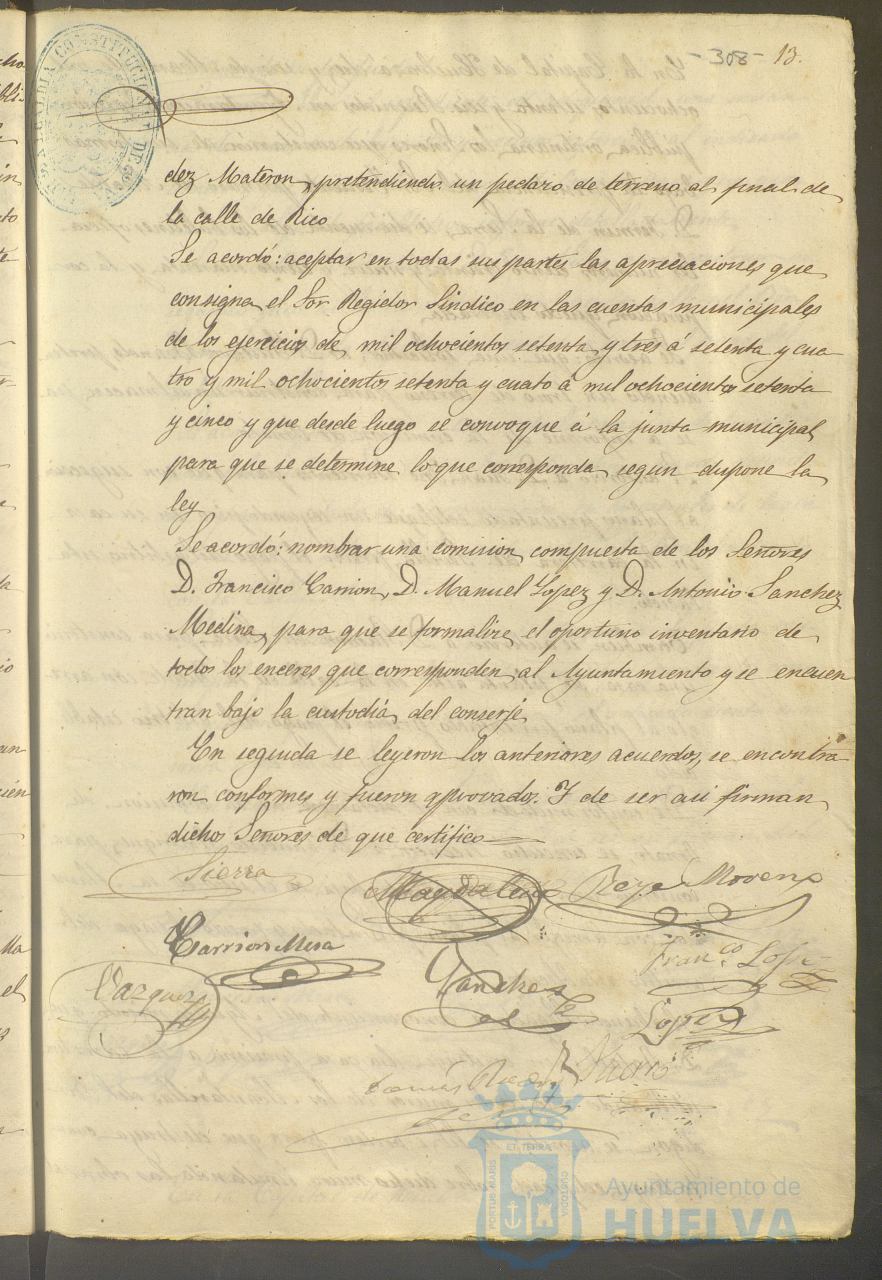 -308- 13.
dez Materon, pretendiendo un pedazo de terreno al final de
la calle de Rico
Se acordó: aceptar en todas sus partes las apreciaciones que
consigna el Sor Regidor Sindico en las cuentas municipales
de los ejercicios de mil ochocientos setenta y tres á setenta y cua
tro y mil ochocientos setenta y cuato á mil ochocientos setenta
y cinco y que desde luego se convoque á la junta municipal
para que se determine lo que corresponda segun dispone la
ley
Se acordó: nombrar una comision compuesta de los Señores
D. Francisco Carrion, D. Manuel Lopez y D. Antonio Sanchez
Medina, para que se formalize el oportuno inventario de
todos los enceres que corresponden al Ayuntamiento y se encuen
tran bajo la custodia del conserje
En seguida se leyeron los anteriores acuerdos, se encontra
ron conformes y fueron aprovados. Y de ser asi firman
dichos Señores de que certifico
Sierra Magdalena Reye Moreno
Carrion Mesa
Vazquez Sanchez Franco. Lopz
Lopez
Tomás
Ayuntamiento de
HUELVA
PORTUS MARIS ET TERRÆ CUSTODIA